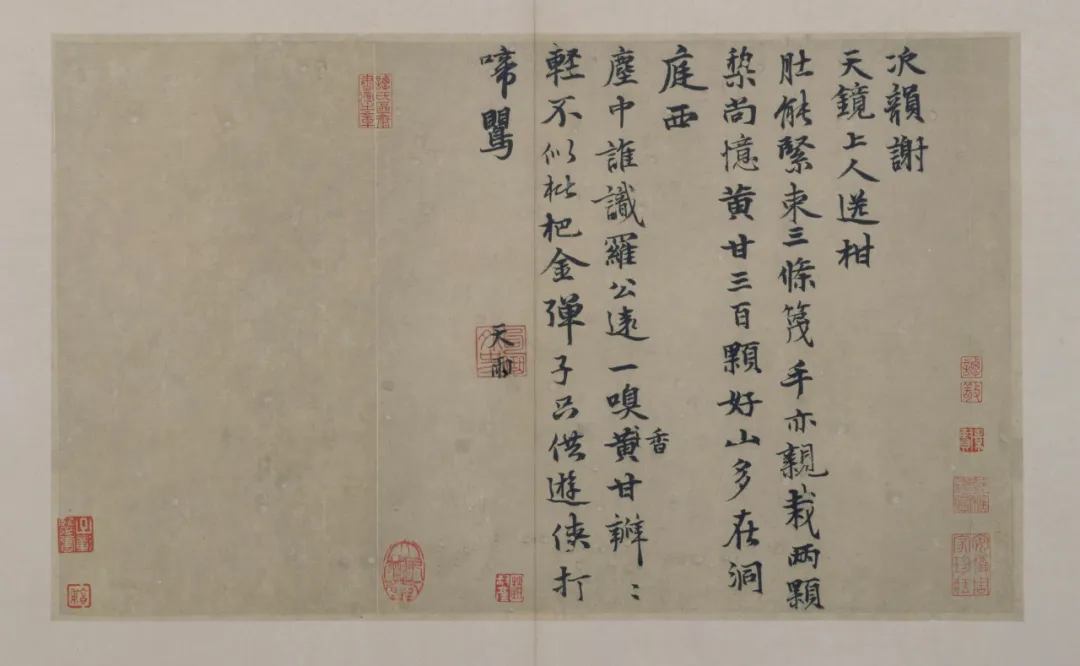 次韻謝
天鏡上人送柑
肚能緊束三條篾手亦親栽兩顆
棃尚憶黄甘三百顆好山多在洞
庭西
塵中誰識羅公遠一嗅黄甘辦〻
香
輕不似枇杷金弹子只供遊俠打
啼鸎
天雨